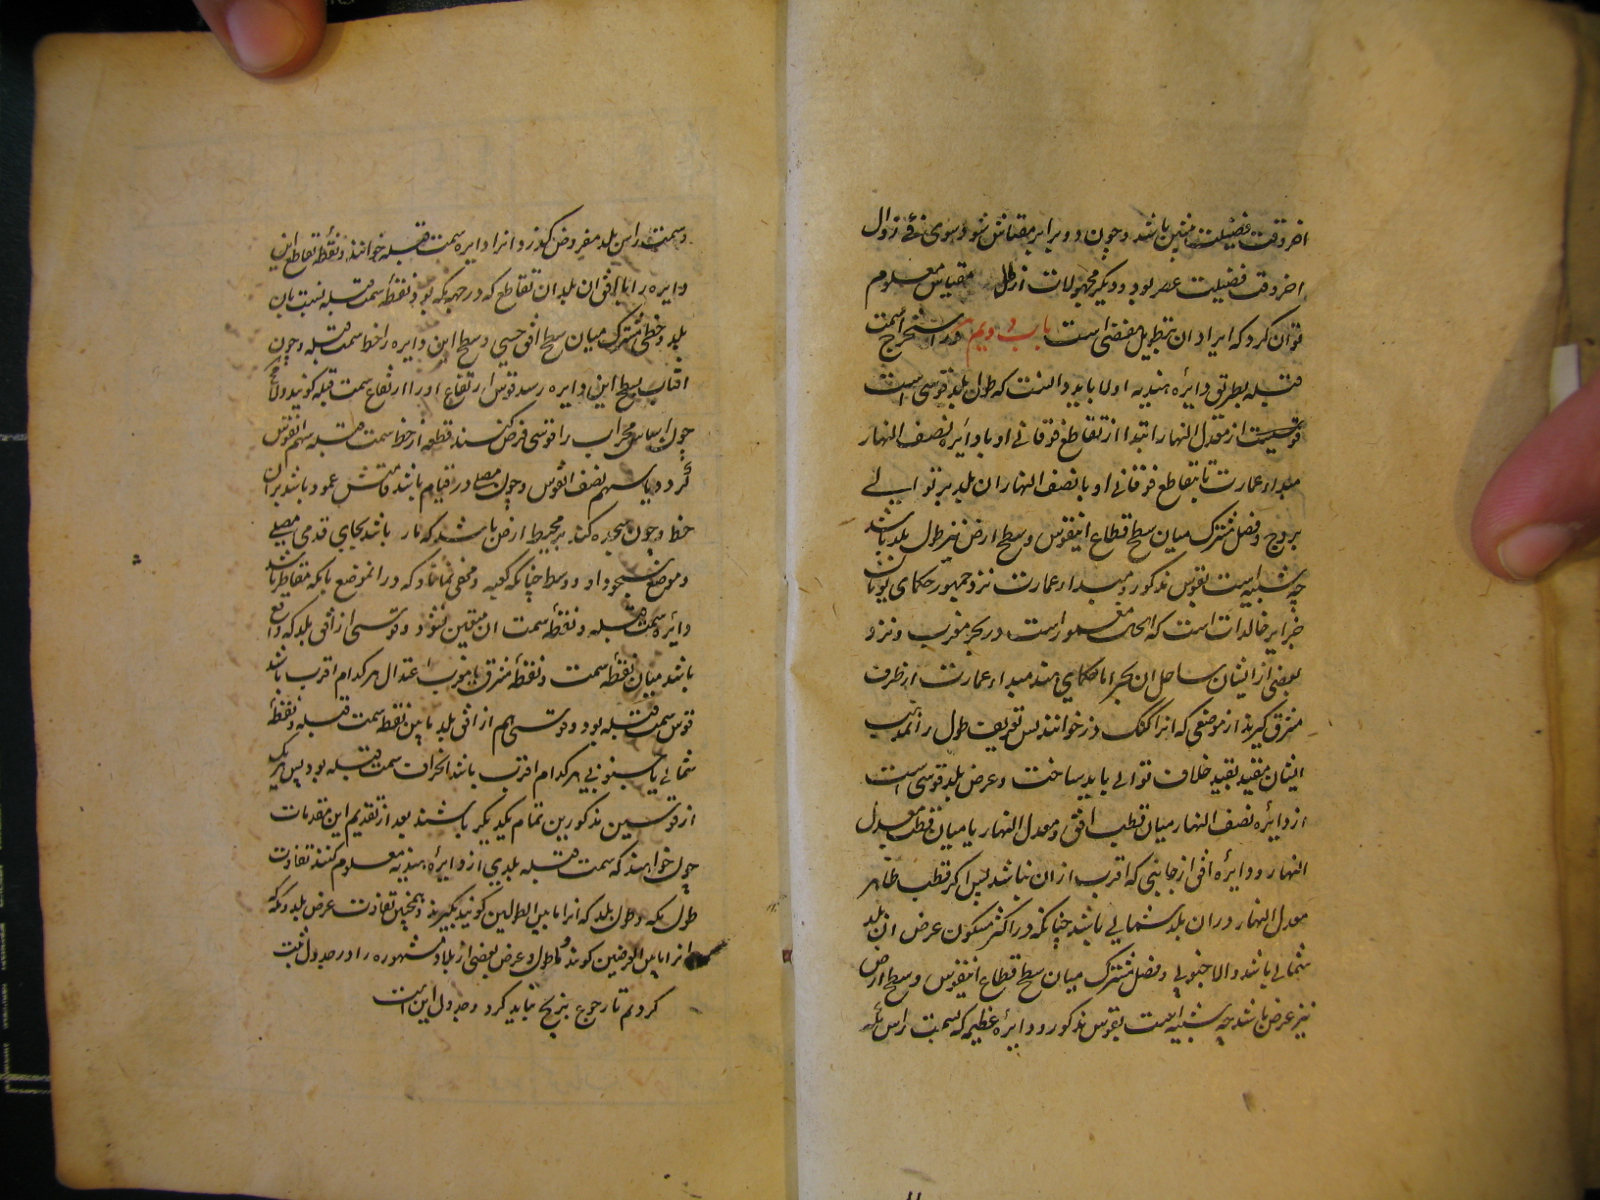 اخر وقت فضیلت پیشین باشد و چون دو برابر مقیاس شود سوی فئ زوال
اخر وقت فضیلت عصر بود و دیگر مجهولات از ظل مقیاس معلوم
توان کرد که ایراد ان بتطویل مفضی است باب دویم در استخراج سمت
قبله بطریق دایرهٔ هندیه اولا باید دانست که طول بلد قوسی است
از معدل النهار ابتدا از تقاطع فوقانی او با دایرهٔ نصف النهار
مبداء عمارت تا تقاطع فوقانی او با نصف النهار ان بلد بر توالی
بروج و فصل مشترک میان سطح قطاع اینقوس و سطح ارض نیز طول بلد باشد
چه شبیه است بقوس مذکور و مبداء عمارت نزد جمهور حکمای یونان
جزایر خالدات است که الحال معمور است در بحر مغرب و نزد
بعضی از ایشان ساحل ان بحر اما حکمای هند مبداء عمارت از طرف
مشرق گیرند از موضعی که انرا گنگ دز خوانند پس تعریف طول را بمذهب
ایشان مقید بقید خلاف توالی باید ساخت و عرض بلد قوسی است
از دایرهٔ نصف النهار میان قطب افق و معدل النهار یا میان قطب معدل
النهار و دایرهٔ افق از جانبی که اقرب از ان نباشد پس اکر قطب ظاهر
معدل النهار در ان بلد شمالی باشد چنانکه در اکثر مسکون عرض ان بلد
شمالی باشد والا جنوبی و فصل مشترک میان سطح قطاع اینقوس و سطح ارض
نیز عرض باشد چه شبیه است بقوس مذکور و دایرهٔ عظیمه که بسمت راس مکه
و سمت راس بلد مفروض کذرد انرا دایره سمت قبله خوانند و نقطهٔ تقاطع این
دایره را با افق ان بلد ان تقاطع که در جهه مکه بود نقطهٔ سمت قبله نسبت بان
بلد و خطی مشترک میان سطح افق حسی و سطح این دایره را خط سمت قبله و چون
افتاب بسطح این دایره رسد قوس ارتفاع او را ارتفاع سمت قبله کویند
چون اساس محراب را قوسی فرض کنند قطعه از خط سمت قبله سهم انقوس
کردد یا سهم نصف انقوس و چون مصلی در قیام باشد قامتش عمود باشد بران
خط و چون سجده کند بر محیط ارض باشد که مار باشد بجای قدمی مصلی
و موضع سجود او و وسط خانه کعبه و مخفی نماناد که در انموضع با مکه متقاطر باشد
دایرهٔ سمت قبله و نقطهٔ سمت ان متعین نشود و قوسی از افق بلد که واقع
باشد میان نقطهٔ سمت و نقطهٔ مشرق یا مغرب اعتدال هر کدام اقرب باشد
قوس سمت قبله بود و قوسی هم از افق بلد مابین نقطهٔ سمت قبله و نقطهٔ
شمالی یا جنوبی هر کدام اقرب باشد انحراف سمت قبله بود پس هر یک
از قوسین مذکورین تمام یکدیکر باشند بعد از تقدیم این مقدمات
چون خواهند که سمت قبله بلدی از دایرهٔ هندیه معلوم کنند تفاوت
طول مکه و طول بلد که انرا مابین الطولین کویند بگیرند و همچنین تفاوت عرض بلد و مکه
انرا مابین العرضین کویند و ما طول و عرض بعضی از بلاد مشهوره را در جدول ثبت
کردیم تا رجوع بزیج نباید کرد و جدول این است